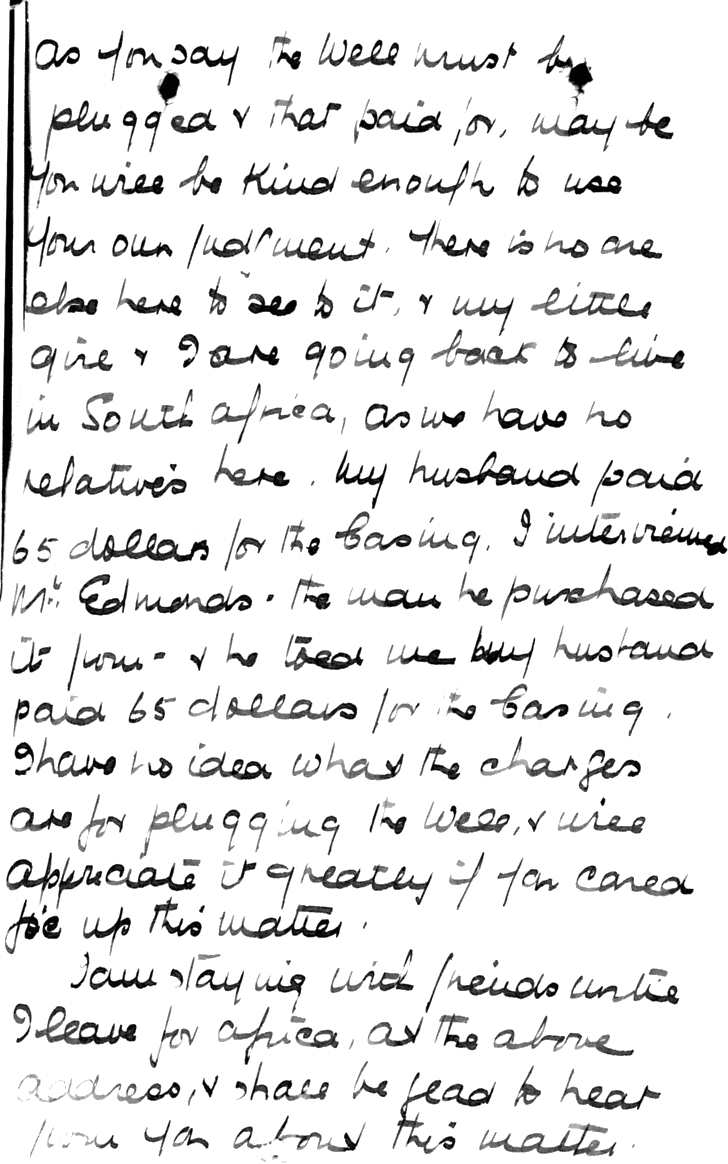 as you say the Well must be
plugged & that paid for, may be
you will be kind enough to use
your own judgment. There is no one
else here to see to it, & my little
girl & I are going back to live
in South Africa, as we have no
relatives here. My husband paid
65 dollars for the Casing. I interviewed
Mr. Edmonds - the man he purchased
it from - & he told me my husband
paid 65 dollars for the Casing.
I have no idea what the charges
are for plugging the Well, & will
appreciate it greatly if you could
fix up this matter.
I am staying with friends until
I leave for Africa, at the above
address, & shall be glad to hear
from you about this matter.